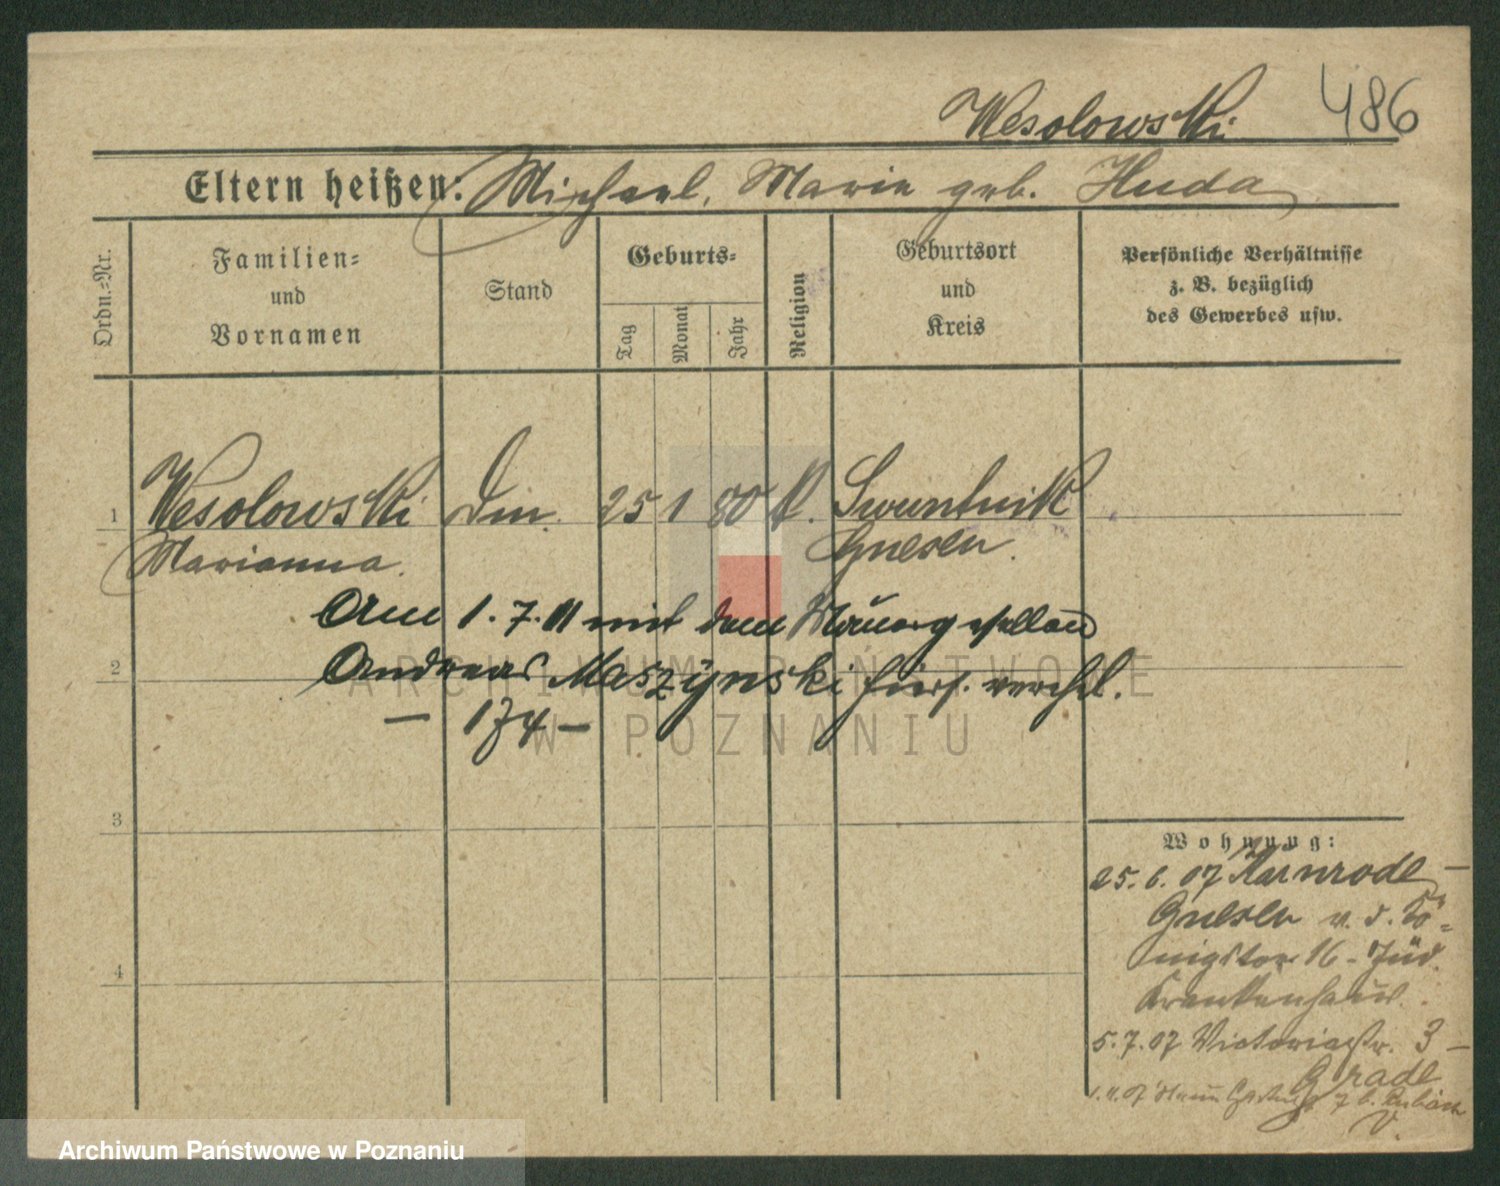 Wesolowski 486
Eltern heißen: Michael, Marie geb. Huda
Ordn.-Nr.
Familien-
und
Vornamen
Stand
Geburts-
Tag
Monat
Jahr
Religion
Geburtsort
und
Kreis
Persönliche Verhältnisse
z. B. bezüglich
des Gewerbes usw.
1 Wesolowski Dm. 25 1 80 k. 
Marianna. Gnesen.
Am 1. 7. 11 mit dem Maurergesellen
2 Andreas Maszynski hiers. verehel.
— 174 —
3
4
Wohnung:
25. 6. 07 Karnrode —
Gnesen v. d. Kö-
nigstor 16 - Jüd.
Krankenhaus.
5. 7. 07 Victoriastr. 3 —
Grade
ARCHIWUM PAŃSTWOWE
W POZNANIU
Archiwum Państwowe w Poznaniu